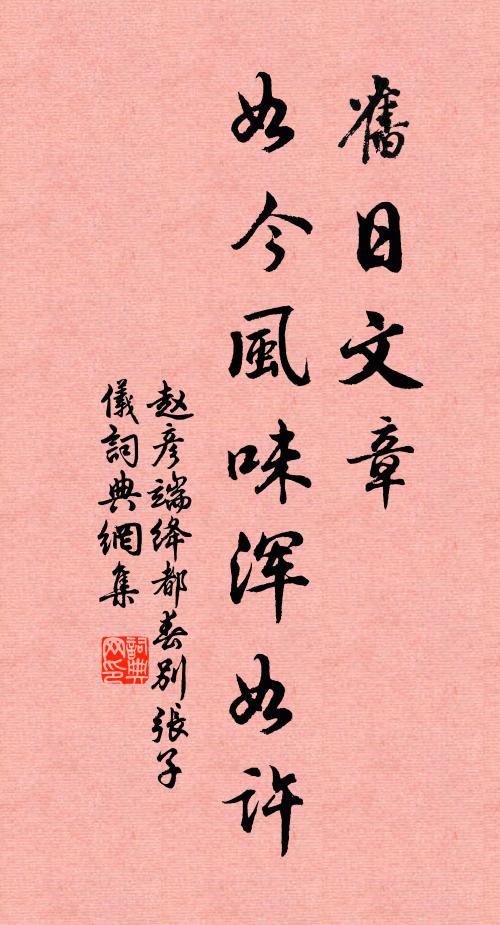 舊日文章
如今風味浑如許
赵彦端绛都春别張子
儀詞典網集
詞典
网印